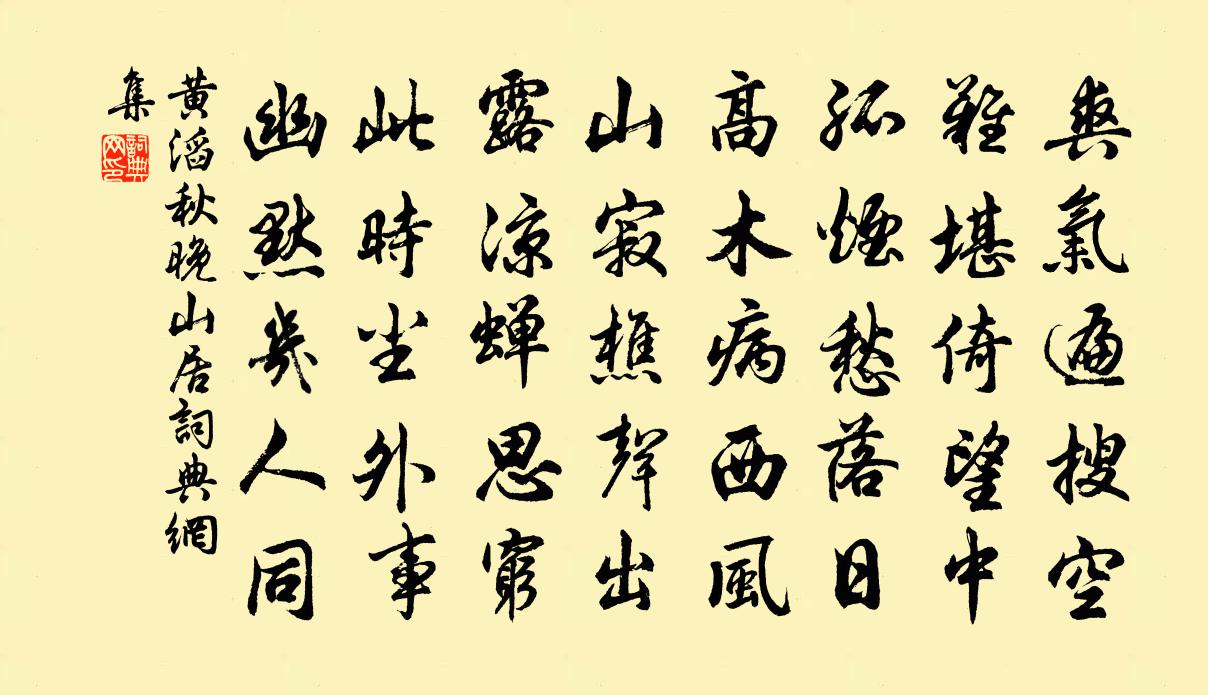 爽氣遍搜空
難堪倚望中
孤煙愁落日
高木病西風
山寂樵聲出
露涼蟬思窮
此時塵外事
幽默幾人同
黃滔秋晚山居詞典網
集
詞典
网印